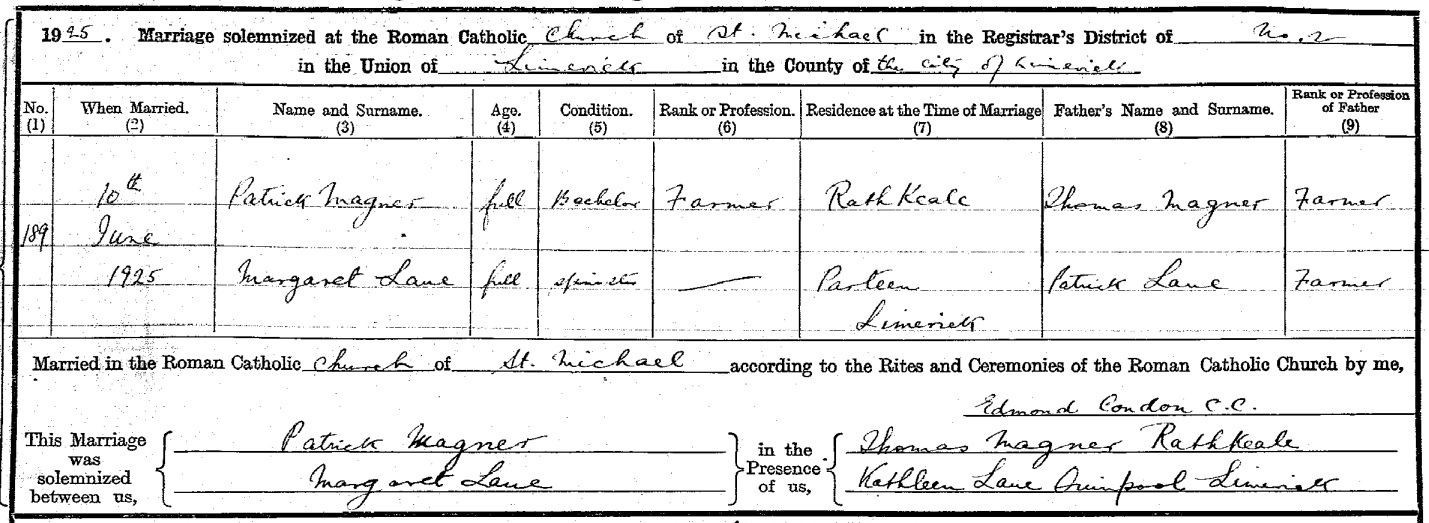 1925. Marriage solemnized at the Roman Catholic Church of St. Michael in the Registrar's District of No. 2
in the Union of Limerick in the County of the City of Limerick
No. (1) When Married. (2) Name and Surname. (3) Age. (4) Condition. (5) Rank or Profession. (6) Residence at the Time of Marriage (7) Father's Name and Surname. (8) Rank or Profession of Father (9)
10th Patrick Magner full Bachelor Farmer RathKeale Thomas Magner Farmer
189 June
1925 Margaret Lane full spinster — Parteen Patrick Lane Farmer
Limerick
Married in the Roman Catholic Church of St. Michael according to the Rites and Ceremonies of the Roman Catholic Church by me,
Edmond Condon C.C.
This Marriage was solemnized between us,
Patrick Magner
Margaret Lane
in the Presence of us,
Thomas Magner RathKeale
Kathleen Lane Quinpool Limerick